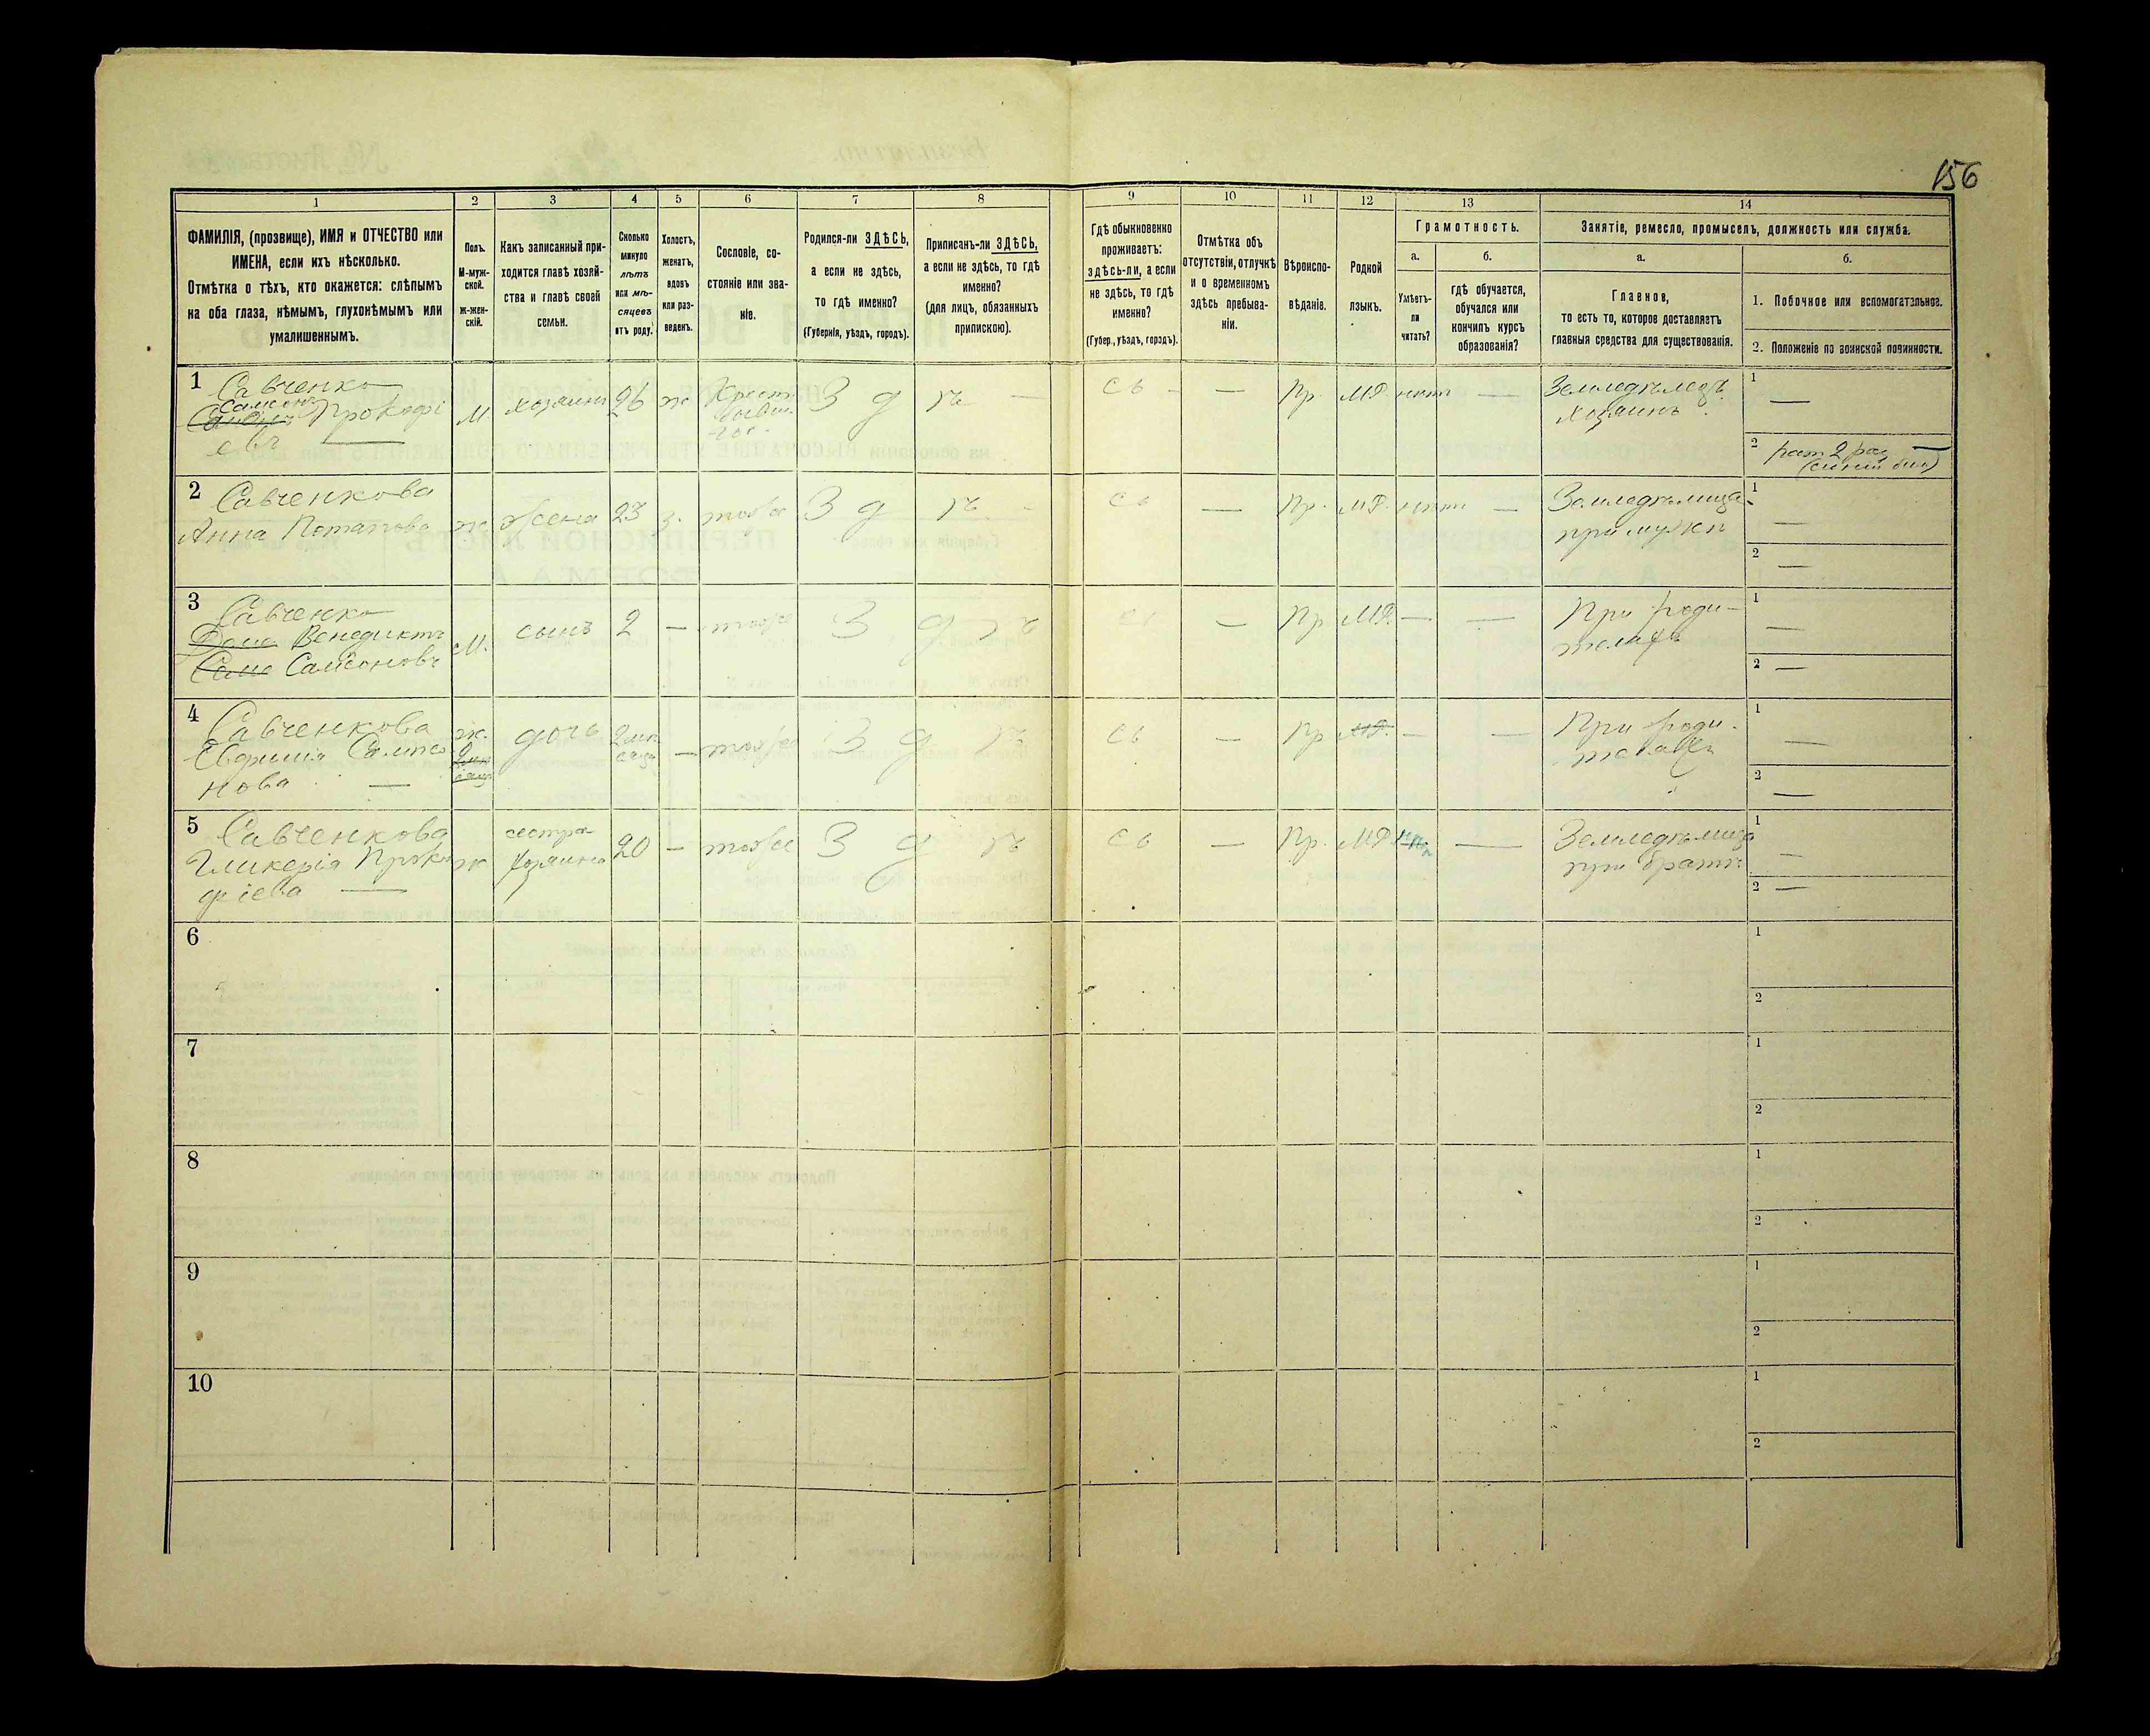 156
1
2
3
4
5
6
7
8
9
10
11
12
13
14
ФАМИЛІЯ, (прозвище), ИМЯ и ОТЧЕСТВО или
ИМЕНА, если ихъ нѣсколько.
Отмѣтка о тѣхъ, кто окажется: слѣпымъ
на оба глаза, нѣмымъ, глухонѣмымъ или
умалишеннымъ.
Полъ.
М-муж-
ской.
ж-жен-
скій.
Какъ записанный при-
ходится главѣ хозяй-
ства и главѣ своей
семьи.
Сколько
минуло
лѣтъ
или мѣ-
сяцевъ
отъ роду.
Холостъ,
женатъ,
вдовъ
или раз-
веденъ.
Сословіе, со-
стояніе или зва-
ніе.
Родился-ли ЗДѢСЬ,
а если не здѣсь,
то гдѣ именно?
(Губернія, уѣздъ, городъ).
Приписанъ-ли ЗДѢСЬ,
а если не здѣсь, то гдѣ
именно?
(для лицъ, обязанныхъ
припискою).
Гдѣ обыкновенно
проживаетъ:
здѣсь-ли, а если
не здѣсь, то гдѣ
именно?
(Губер., уѣздъ, городъ).
Отмѣтка объ
отсутствіи, отлучкѣ
и о временномъ
здѣсь пребыва-
ніи.
Вѣроиспо-
вѣданіе.
Родной
языкъ.
Грамотность.
а.
Умѣетъ-
ли
читать?
б.
гдѣ обучается,
обучался или
кончилъ курсъ
образованія?
Занятіе, ремесло, промыселъ, должность или служба.
а.
Главное,
то есть то, которое доставляетъ
главныя средства для существованія.
б.
1. Побочное или вспомогательное.
2. Положеніе по воинской повинности.
1
Савченко
Самсонъ
Прокофі
евъ
М.
хозяинъ
26
ж
Крест
З д ѣ
сь
Пр.
МР.
нѣтъ
Земледѣлецъ
хозяинъ
1
2
рат 2 раз
2
Савченкова
Анна Потапова
ж.
жена
23
з.
тоже
З д ѣ
сь
Пр.
МР.
нѣтъ
Земледѣлица
при мужѣ
1
2
3
Савченко
Венедиктъ
Самсоновъ
М.
сынъ
2
тоже
З д ѣ
сь
Пр
МР.
При роди-
теляхъ
1
2
4
Савченкова
Евфимія Сампсо
нова
ж.
дочь
2 мѣ
сяца
тоже
З д ѣ
сь
Пр
МР.
При роди-
теляхъ
1
2
5
Савченкова
Гликерія Проко
фіева
ж
сестра
хозяина
20
тоже
З д ѣ
сь
Пр.
МР
нѣтъ
Земледѣлица
при братѣ
1
2
6
1
2
7
1
2
8
1
2
9
1
2
10
1
2